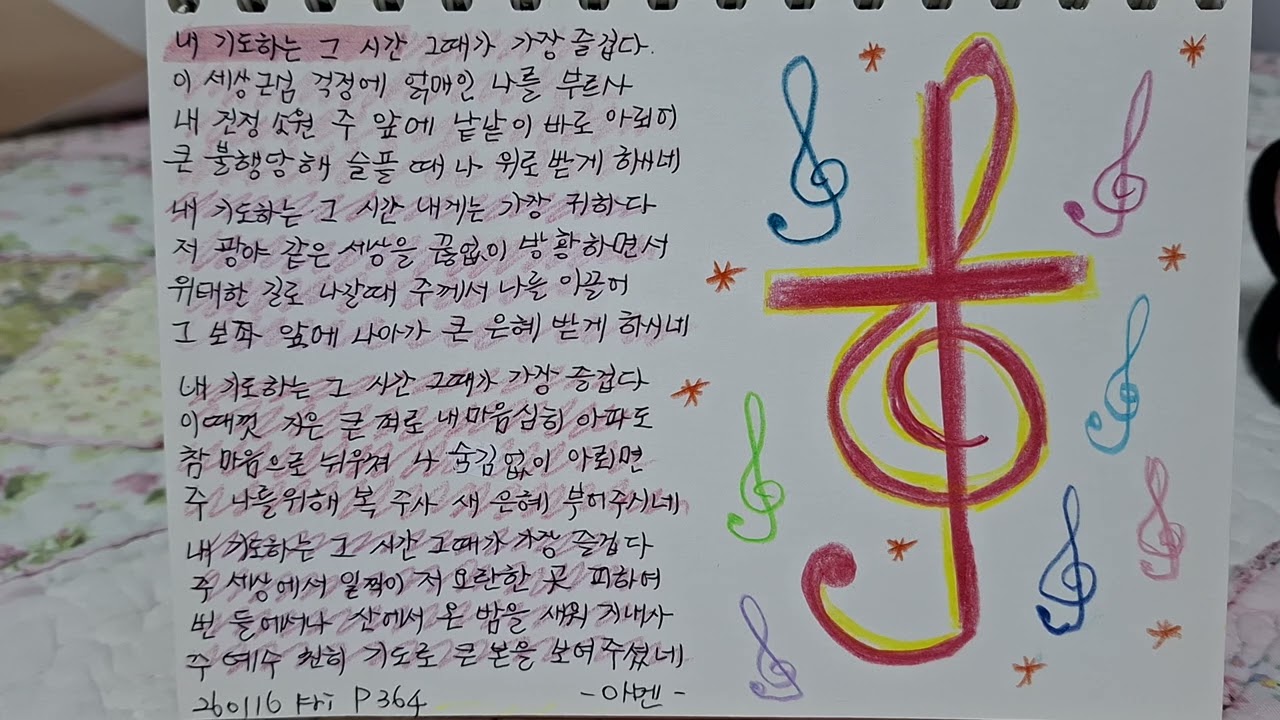 내 기도하는 그 시간 그때가 가장 즐겁다.
이 세상근심 걱정에 얽매인 나를 부르사
내 진정 소원 주 앞에 낱낱이 바로 아뢰어
큰 불행당해 슬플 때 나 위로 받게 하시네
내 기도하는 그 시간 내게는 가장 귀하다
저 광야 같은 세상을 끊없이 방황하면서
위태한 길로 나갈때 주께서 나를 이끌어
그 보좌 앞에 나아가 큰 은혜 받게 하시네
내 기도하는 그 시간 그때가 가장 즐겁다
이때껏 지은 큰 죄로 내마음심히 아파도
참 마음으로 뉘우쳐 나 숨김없이 아뢰면
주 나를위해 복 주사 새 은혜 부어주시네
내 기도하는 그 시간 그때가 가장 즐겁다
주 세상에서 일찍이 저 요란한 곳 피하여
빈 들에서나 산에서 온 밤을 새워 지내사
주 예수 친히 기도로 큰 본을 보여주셨네
260116 Fri P364 -아멘-